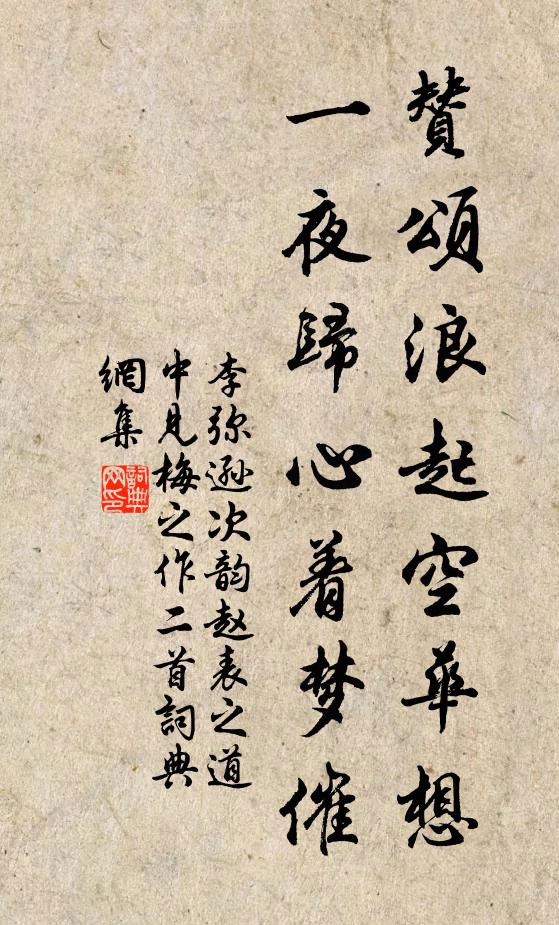 赞頌浪起空華想
一夜歸心着梦催
李弥遜次韵赵表之道
中見梅之作二首詞典
網集
詞典
网印